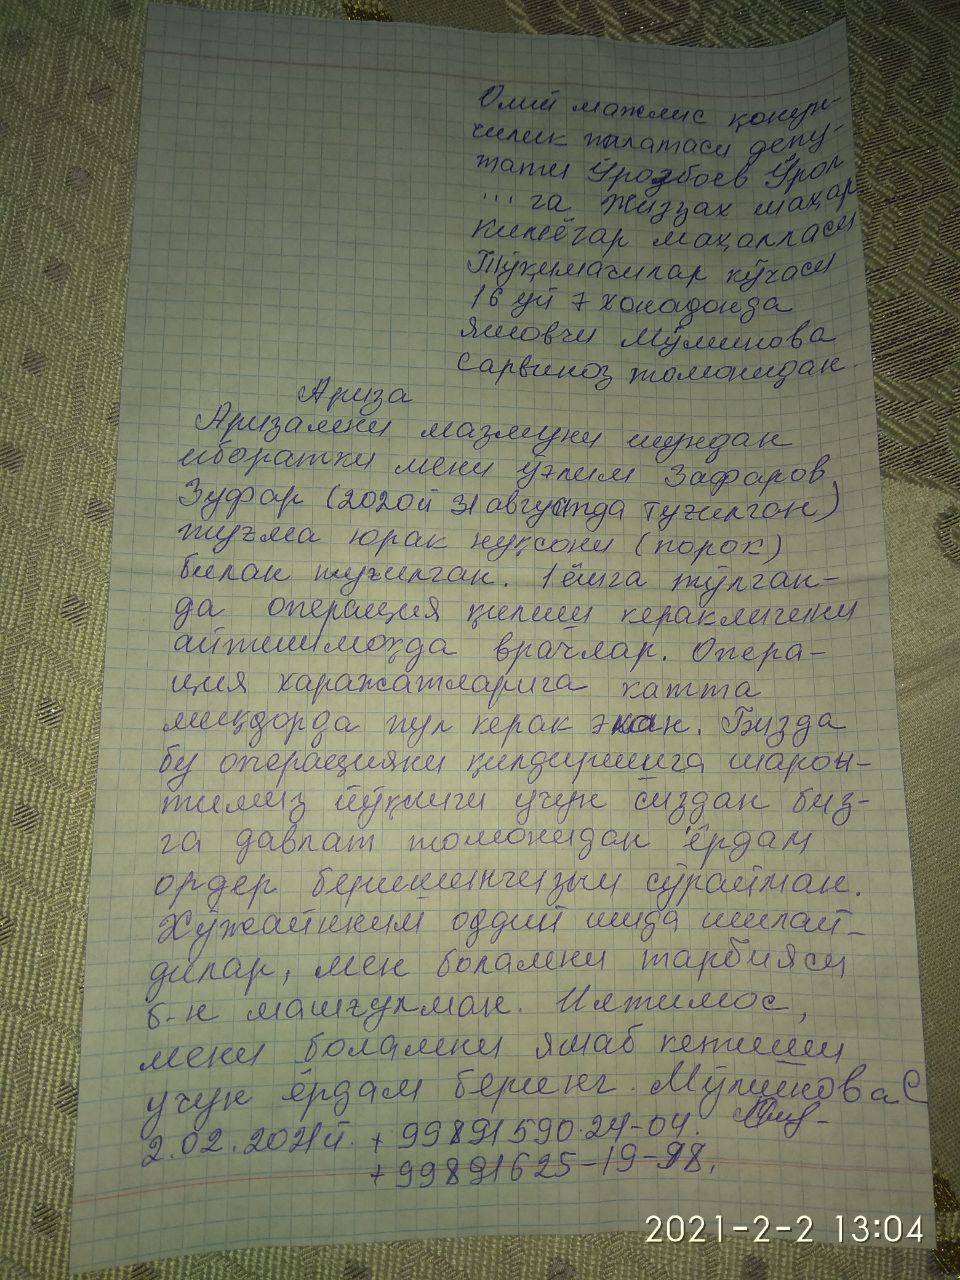 Олий мажлис қонун-
чилик палатаси депу-
тати Ўрозбоев Ўрол
...га Жиззах шаҳар
Кимёгар маҳалласи
Тўқимачилар кўчаси
16 уй 7 хонадонда
яшовчи Мўминова
Сарвиноз томонидан.
Ариза
Аризамни мазмуни шундан
иборатки мени ўғлим Зафаров
Зуфар (2020й 31 августда туғилган)
туғма юрак нуқсони (порок)
билан туғилган. 1 ёшга тўлган-
да операция қилиш кераклигини
айтишмоқда врачлар. Опера-
ция харажатларига катта
миқдорда пул керак экан. Бизда
бу операцияни қилдиришга шарои-
тимиз йўқлиги учун сиздан биз-
га давлат томонидан ёрдам
ордер беришингизни сўрайман.
Хўжайиним оддий ишда ишлай-
дилар, мен боламни тарбияси
б-н машғулман. Илтимос,
мени боламни яшаб кетиши
учун ёрдам беринг. Мўминова С
2.02.2021й. +99891590-24-04.
+99891625-19-98.
2021-2-2 13:04